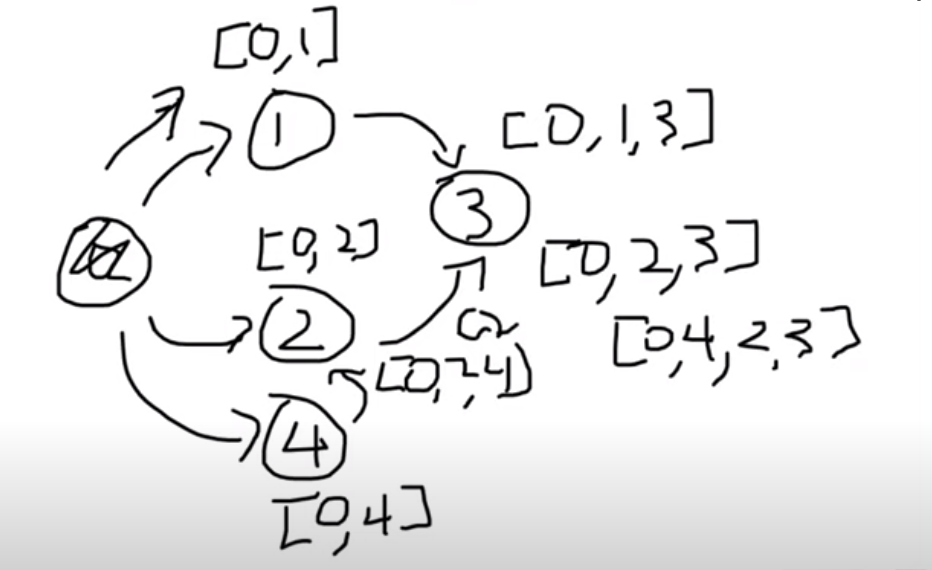 [0,1]
1
[0,1,3]
3
[0,2]
[0,2,3]
2
[0,4,2,3]
[0,2,4]
4
[0,4]